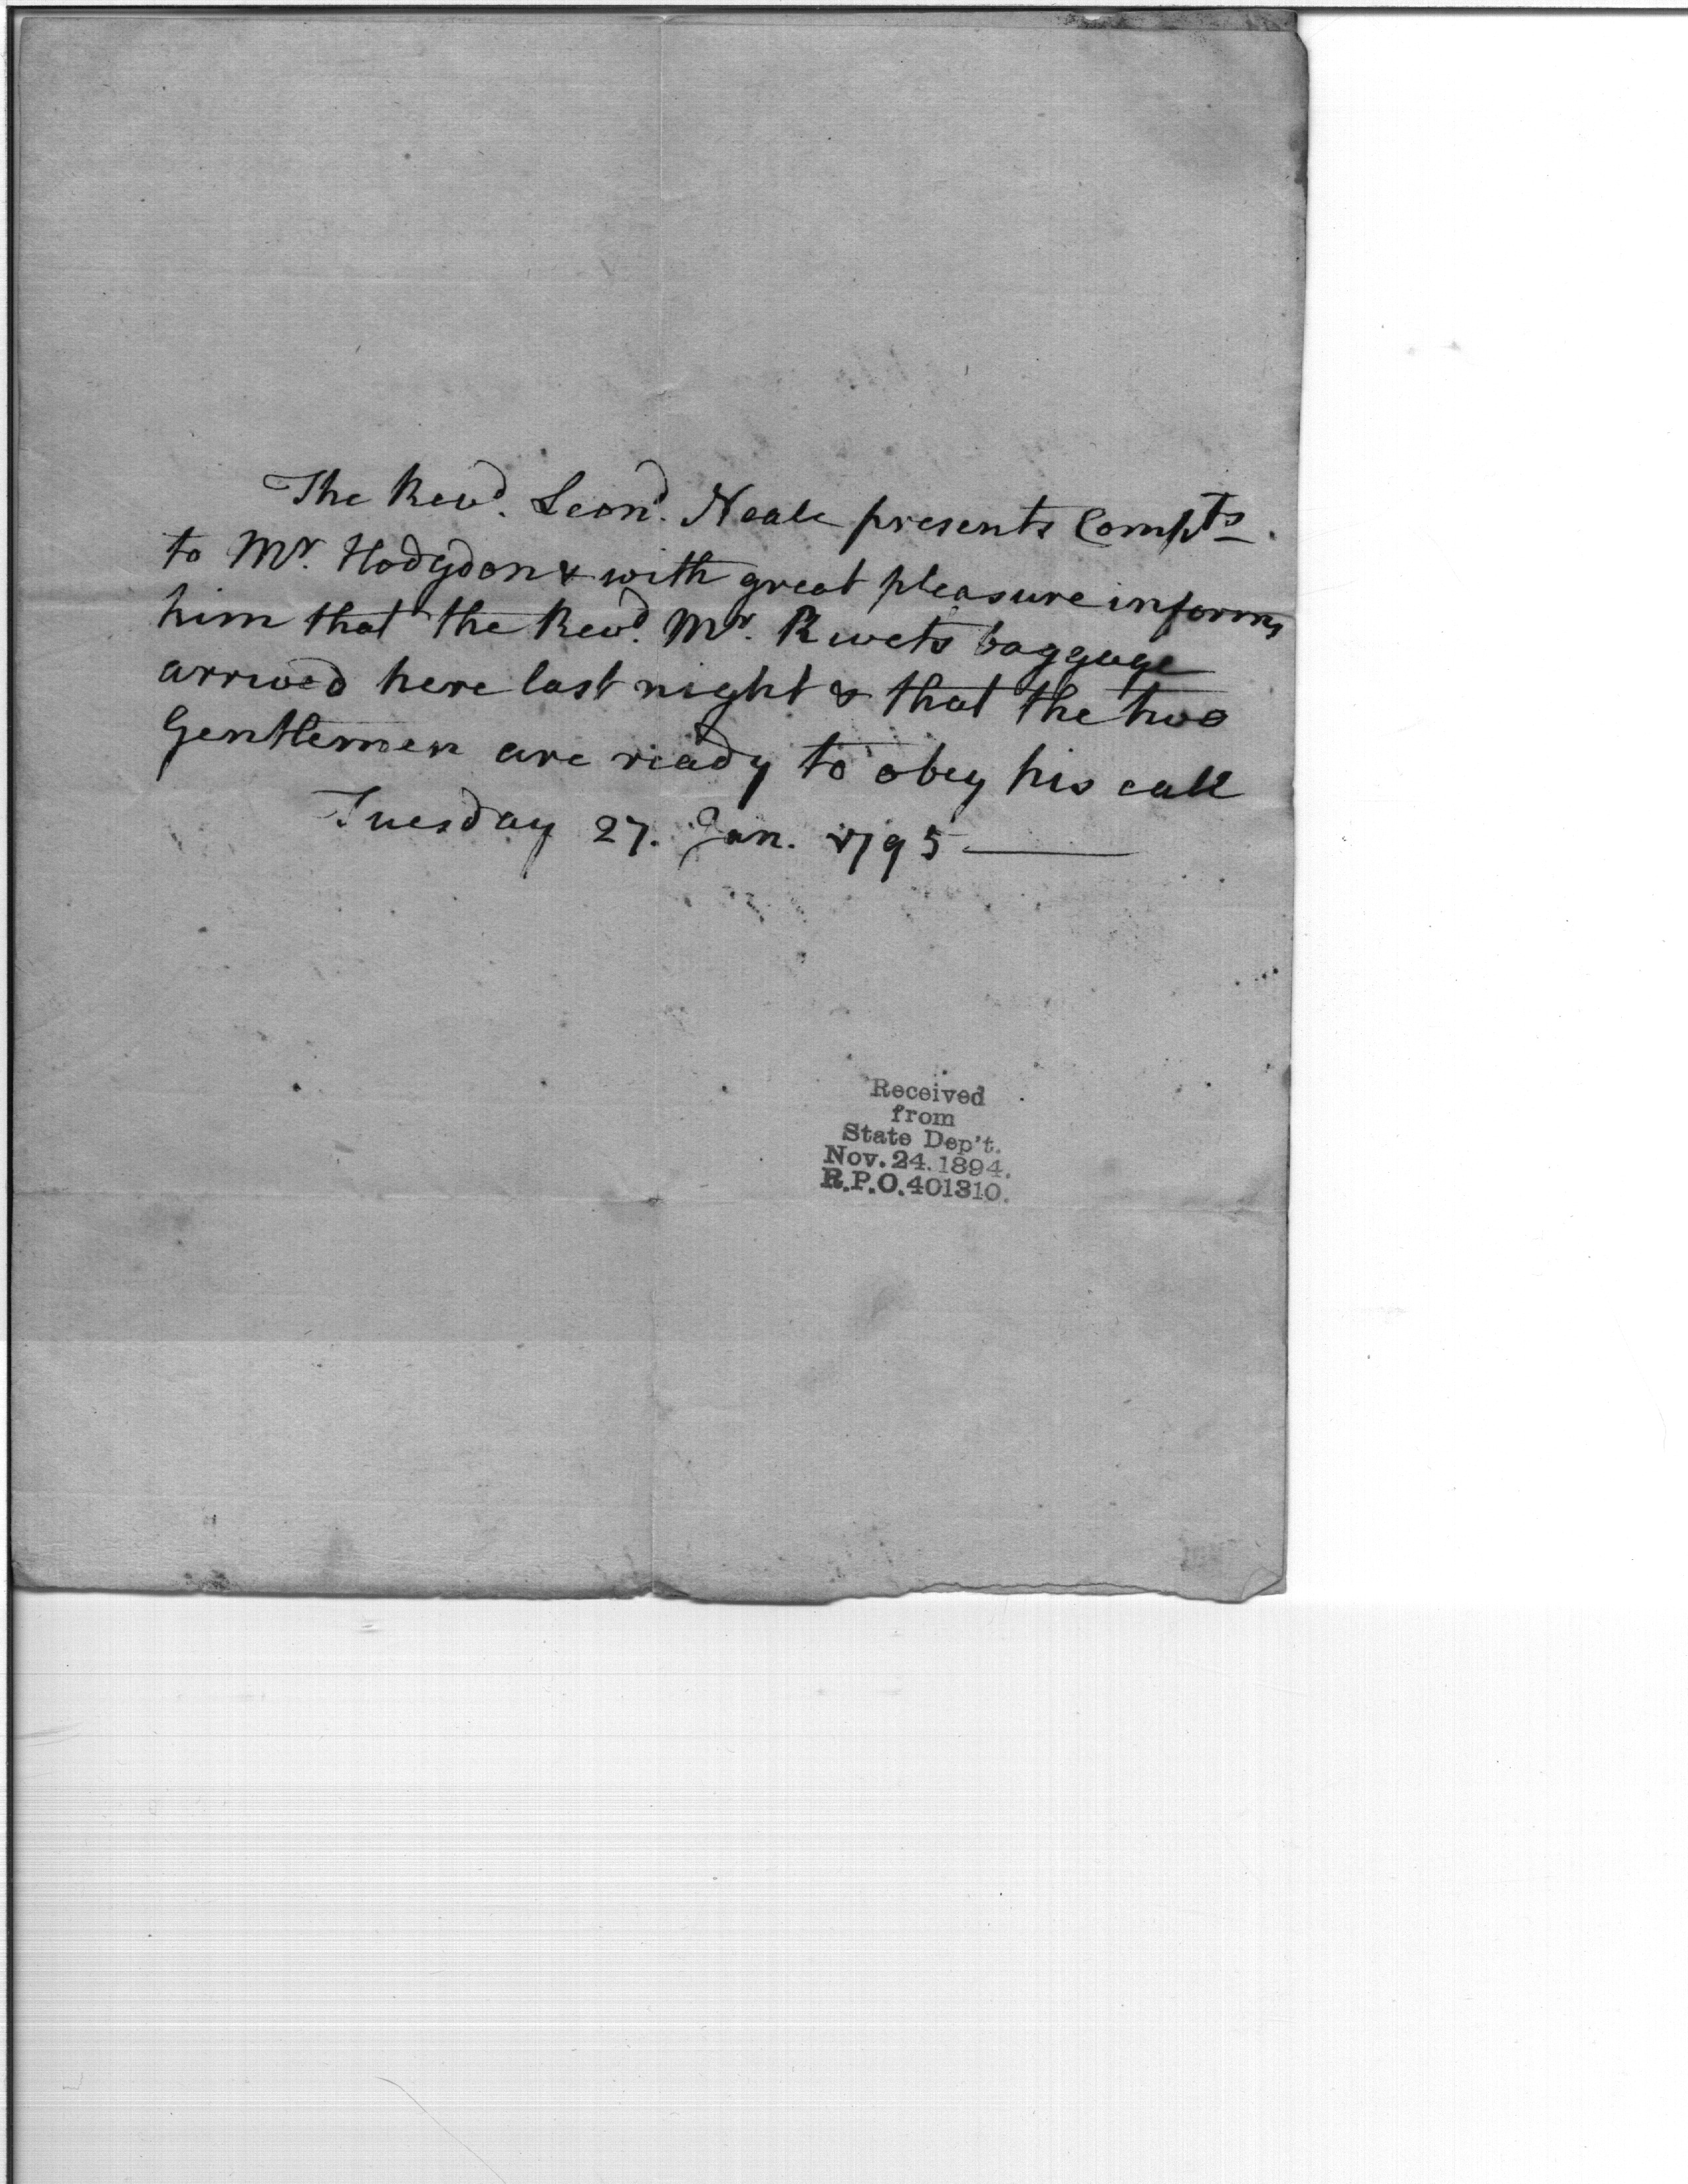 The Revd. Leond. Neale presents Compts.
to Mr. Hodgdon & with great pleasure informs
him that the Revd. Mr. Rivets baggage
arrived here last night & that the two
Gentlemen are ready to obey his call
Tuesday 27. Jan. 1795
Received
from
State Dep't.
Nov. 24. 1894.
R.P.O. 401310.